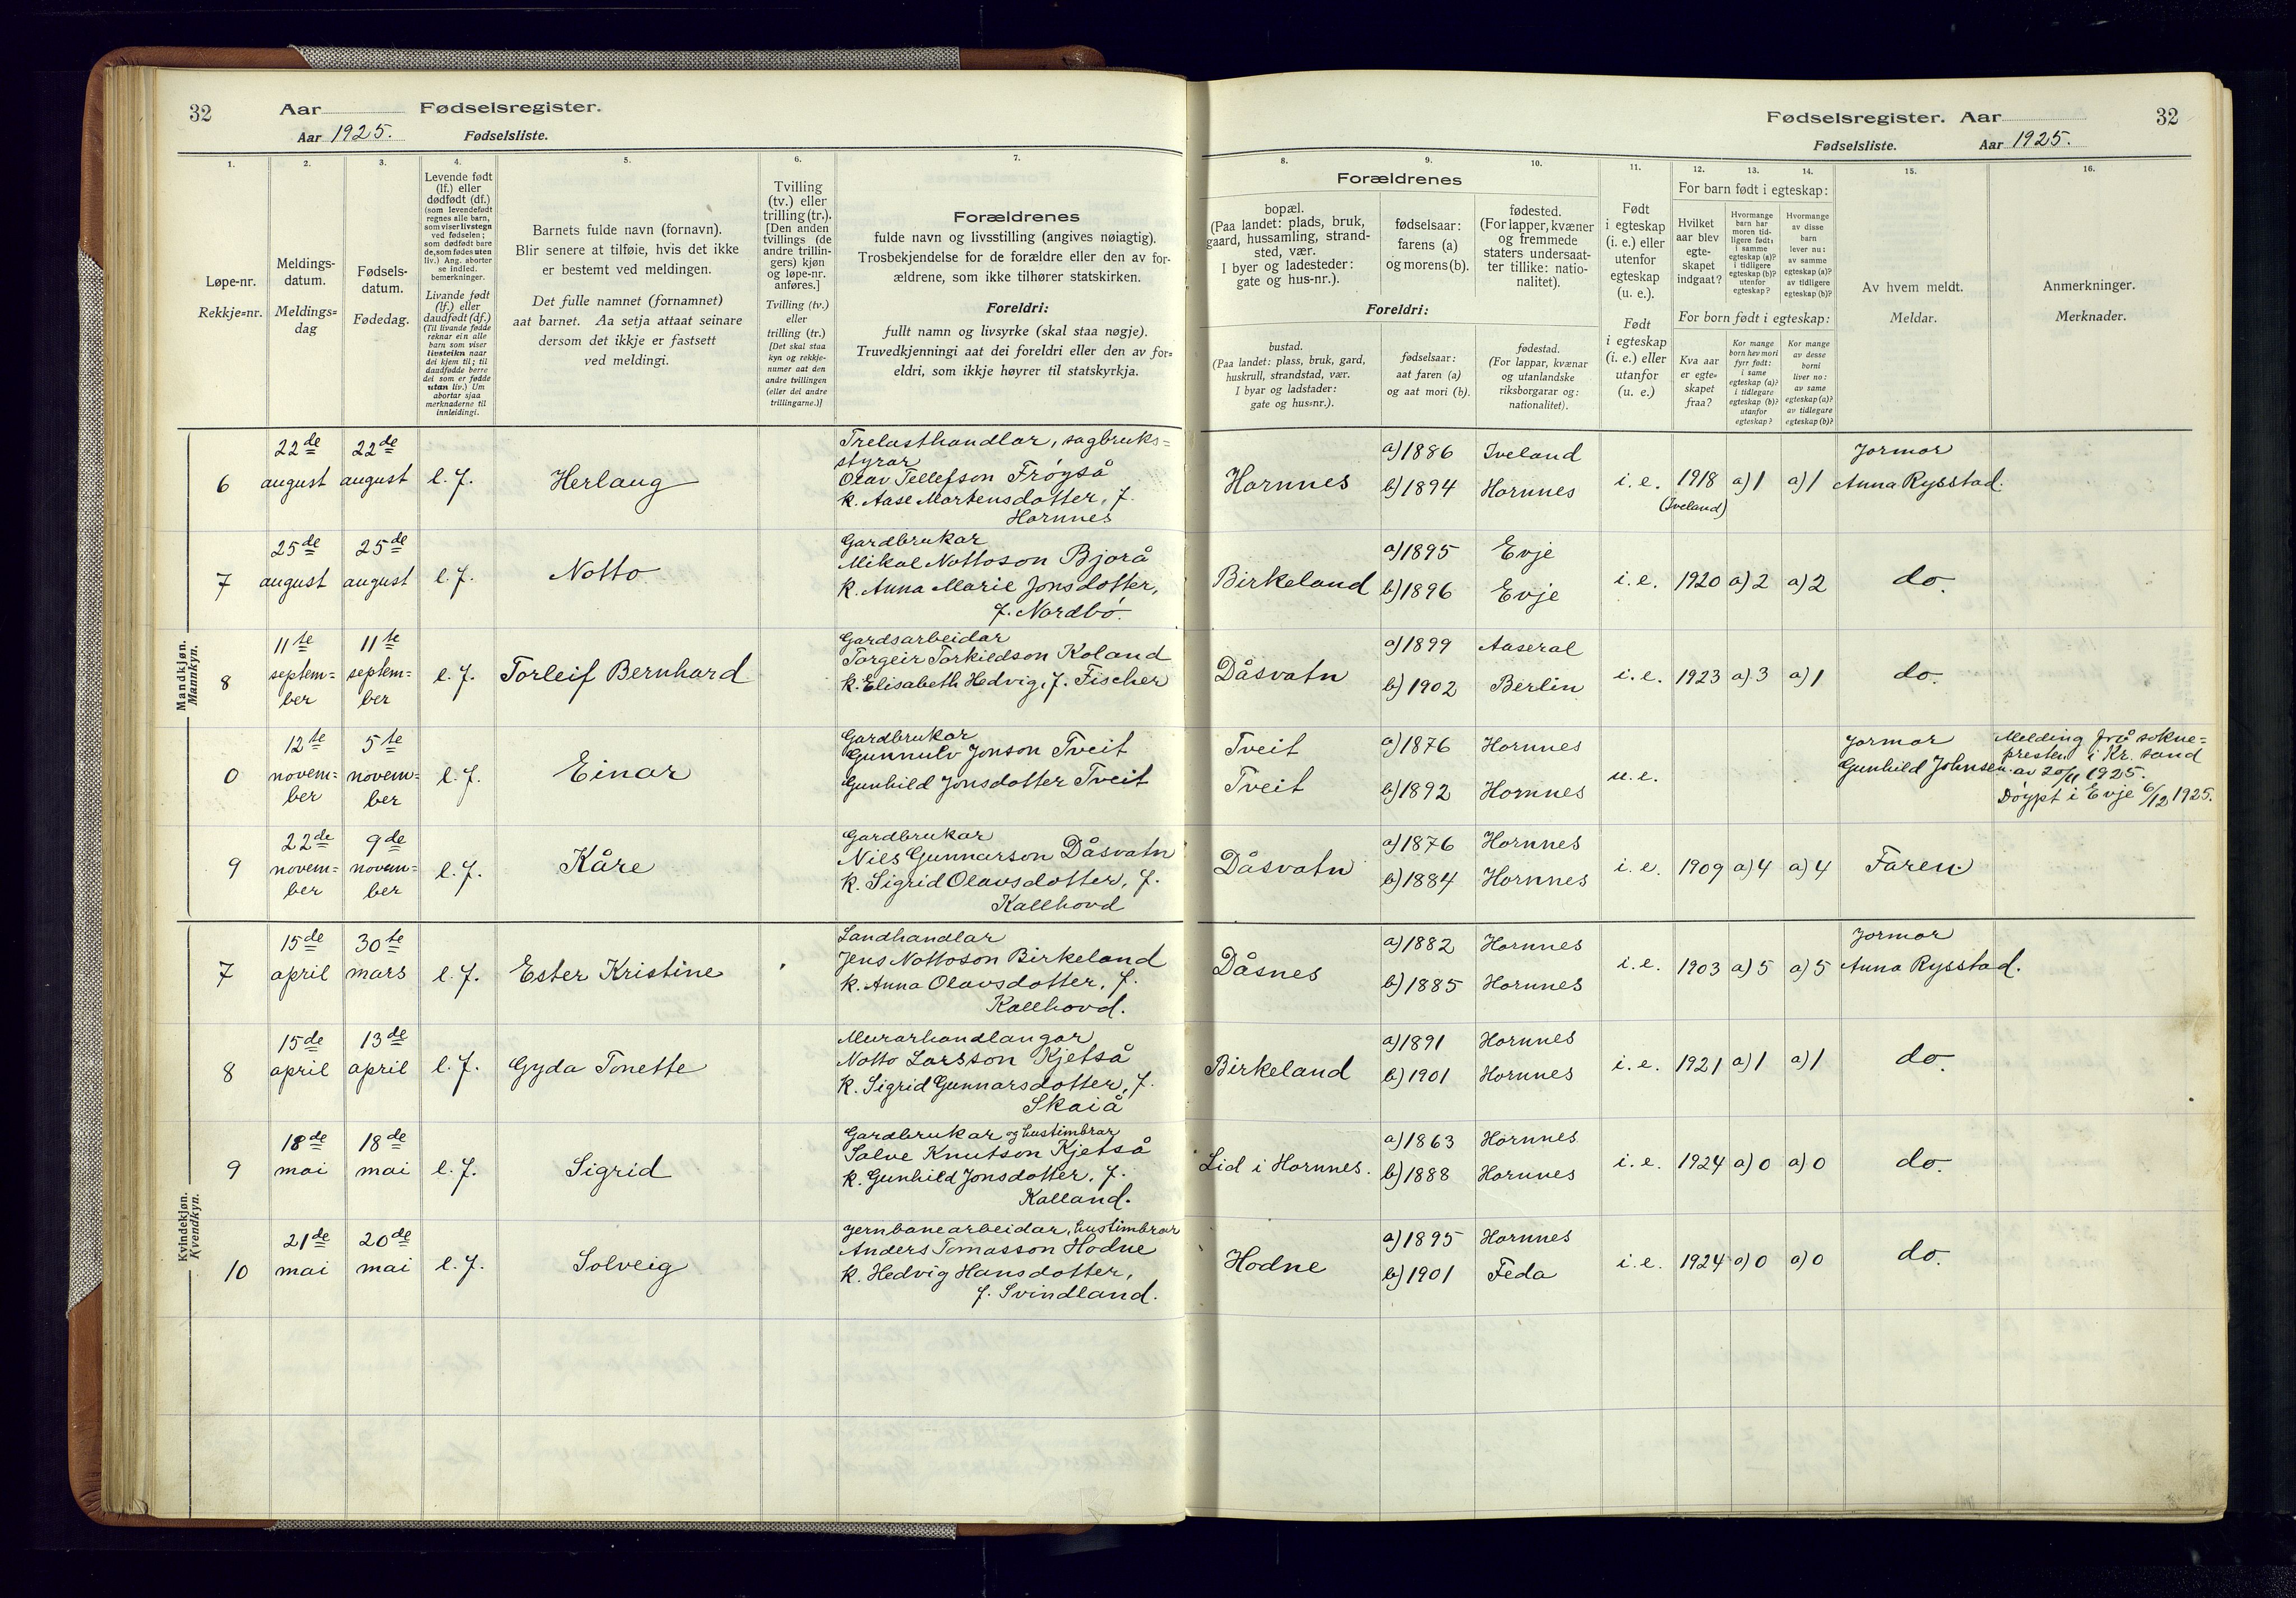 32 Aar Fødselsregister.
Aar 1925. Fødselsliste.
Fødselsregister. Aar 32
Fødselsliste. Aar 1925.
1. 2. 3. 4. 5. 6. 7.
Løpe-nr.
Rekkje=nr.
Meldings-
datum.
Meldings=
dag
Fødsels-
datum.
Fødedag.
Levende født
(lf.) eller
dødfødt (df.)
(som levendefødt
regnes alle barn,
som viser livstegn
ved fødselen;
som dødfødt bare
de, som fødes uten
liv.) Ang. aborter
se indled.
bemerkninger.
Livande født
(lf.) eller
daudfødt (df.)
(Til livande fødde
reknar ein alle
barn som viser
livsteikn naar
dei kjem til; til
daudfødde berre
dei som er fødde
utan liv.) Um
abortar sjaa
merknaderne til
innleidingi.
Barnets fulde navn (fornavn).
Blir senere at tilføie, hvis det ikke
er bestemt ved meldingen.
Det fulle namnet (fornamnet)
aat barnet. Aa setja attaat seinare
dersom det ikkje er fastsett
ved meldingi.
Tvilling
(tv.) eller
trilling (tr.).
[Den anden
tvillings (de
andre trillin-
gers) kjøn
og løpe-nr.
anføres.]
Tvilling (tv.)
eller
trilling (tr.)
[Det skal staa
kyn og rekkje-
numer aat den
andre tvillingen
(eller dei andre
trillingarne.)]
Forældrenes
fulde navn og livsstilling (angives nøiagtig).
Trosbekjendelse for de forældre eller den av for-
ældrene, som ikke tilhører statskirken.
Foreldri:
fullt namn og livsyrke (skal staa nøgje).
Truvedkjenningi aat dei foreldri eller den av for=
eldri, som ikkje høyrer til statskyrkja.
8. 9. 10. 11. 12. 13. 14. 15. 16.
Forældrenes
bopæl.
(Paa landet: plads, bruk,
gaard, hussamling, strand-
sted, vær.
I byer og ladesteder:
gate og hus-nr.).
fødselsaar:
farens (a)
og morens (b).
fødested.
(For lapper, kvæner
og fremmede
staters undersaat-
ter tillike: natio-
nalitet).
Foreldri:
bustad.
(Paa landet: plass, bruk, gard,
huskrull, strandstad, vær.
I byar og ladstader:
gate og hus=nr.).
fødselsaar:
aat faren (a)
og aat mori (b).
fødestad.
(For lappar, kvænar
og utanlandske
riksborgarar og:
nationalitet).
Født
i egteskap
(i. e.) eller
utenfor
egteskap
(u. e.).
Født
i egteskap
(i. e.) eller
utanfor
(u. e.)
For barn født i egteskap:
Hvilket
aar blev
egte-
skapet
indgaat?
Hvormange
barn har
moren tid-
ligere født:
i samme
egteskap (a)?
i tidligere
egteskap (b)?
utenfor
egteskap?
Hvormange
av disse
barn
lever nu:
av samme
egteskap (a)?
av tidligere
egteskap (b)?
For born født i egteskap:
Kva aar
er egte=
skapet
fraa?
Kor mange
born hev mori
fyrr født:
i same
egteskap (a)?
i tidlegare
egteskap (b)?
utanfor
egteskap?
Kor mange
av desse
borni
liver no:
av same
egteskap (a)?
av tidlegare
egteskap (b)?
Av hvem meldt.
Meldar.
Anmerkninger.
Merknader.
Mandkjøn.
Mannkyn.
6 22de august 22de august l. f. Herlaug
Trelasthandlar, sagbruks=
styrar
Olav Tellefson Frøyså
k. Aase Martensdotter, f.
Hornnes
Hornnes a) 1886 Iveland
b) 1894 Hornnes
i. e. 1918 a) 1 a) 1
(Iveland)
Jormor
Anna Rysstad.
7 25de august 25de august l. f. Notto
Gardbrukar
Mikal Nottoson Bjorå
k. Anna Marie Jonsdotter,
f. Nordbø.
Birkeland a) 1895 Evje
b) 1896 Evje
i. e. 1920 a) 2 a) 2 do.
8 11te septem=ber 11te septem=ber l. f. Torleif Bernhard
Gardsarbeidar
Torgeir Torkildson Koland
k. Elisabeth Hedvig, f. Fischer
Dåsvatn a) 1899 Aaseral
b) 1902 Berlin
i. e. 1923 a) 3 a) 1 do.
0 12te novem=ber 5te novem=ber l. f. Einar
Gardbrukar
Gunnulv Jonson Tveit
Gunhild Jonsdotter Tveit
Tveit a) 1876 Hornnes
Tveit b) 1892 Hornnes
u. e.
Jormor
Gunhild Johnsen.
Melding frå sokne=
presten i Kr. sand
av 20/11 1925.
Døypt i Evje 6/12 1925.
9 22de novem=ber 9de novem=ber l. f. Kåre
Gardbrukar
Niels Gunnarson Dåsvatn
k. Sigrid Olavsdotter, f.
Kallhovd
Dåsvatn a) 1876 Hornnes
b) 1884 Hornnes
i. e. 1909 a) 4 a) 4 Faren.
Kvindekjøn.
Kvendkyn.
7 15de april 30te mars l. f. Ester Kristine
Landhandlar
Jens Nottoson Birkeland
k. Anna Olavsdotter, f.
Kallhovd.
Dåsnes a) 1882 Hornnes
b) 1885 Hornnes
i. e. 1903 a) 5 a) 5
Jormor
Anna Rysstad.
8 15de april 13de april l. f. Gyda Tonette
Murarhandlangar
Notto Larsson Kjetså
k. Sigrid Gunnarsdotter, f.
Skaiå
Birkeland a) 1891 Hornnes
b) 1901 Hornnes
i. e. 1921 a) 1 a) 1 do.
9 18de mai 18de mai l. f. Sigrid
Gardbrukar og hustimbrar
Salve Knutson Kjetså
k. Gunhild Jonsdotter, f.
Kalland.
Lid i Hornnes. a) 1863 Hornnes
b) 1888 Hornnes
i. e. 1924 a) 0 a) 0 do.
10 21de mai 20de mai l. f. Solveig
Jernbanearbeidar, hustimbrar
Anders Tomasson Hodne
k. Hedvig Hansdotter,
f. Svindland.
Hodne a) 1895 Hornnes
b) 1901 Feda
i. e. 1924 a) 0 a) 0 do.